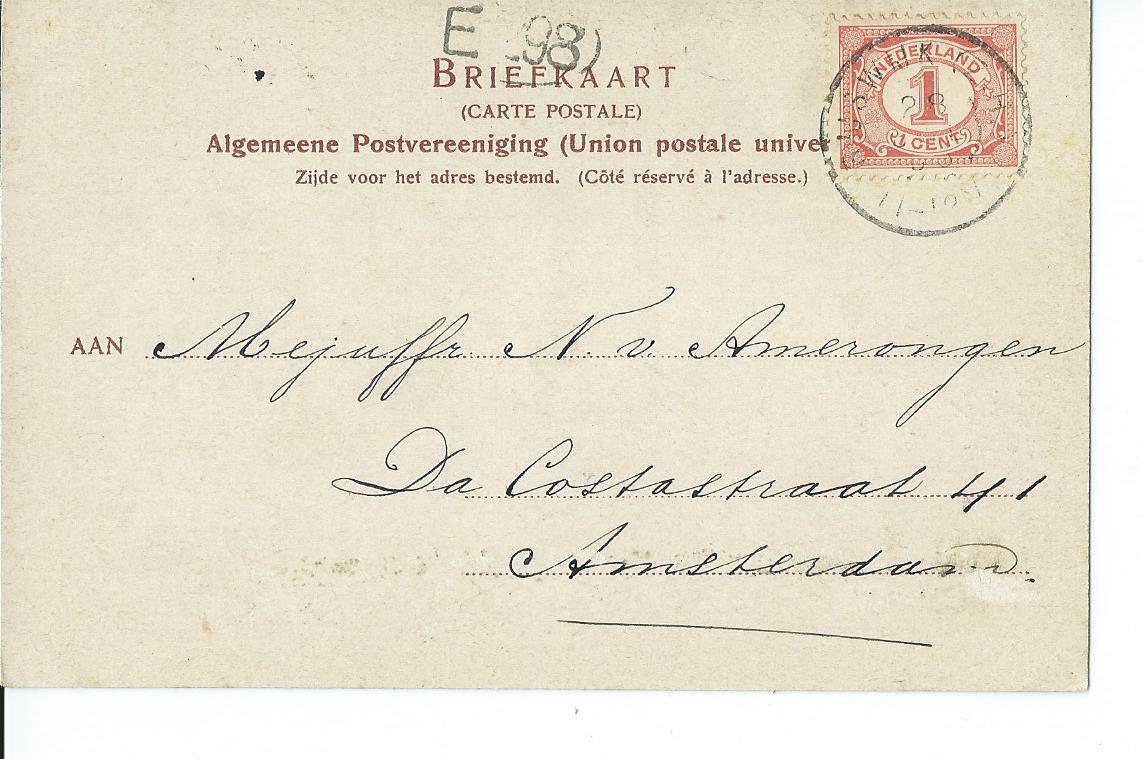 E 98)
BRIEFKAART
(CARTE POSTALE)
Algemeene Postvereeniging (Union postale univer
Zijde voor het adres bestemd. (Côté réservé à l'adresse.)
NEDERLAND
1
1 CENT
11-12N
AAN Mejuffr N. v. Amerongen
Da Costastraat 41
Amsterdam.